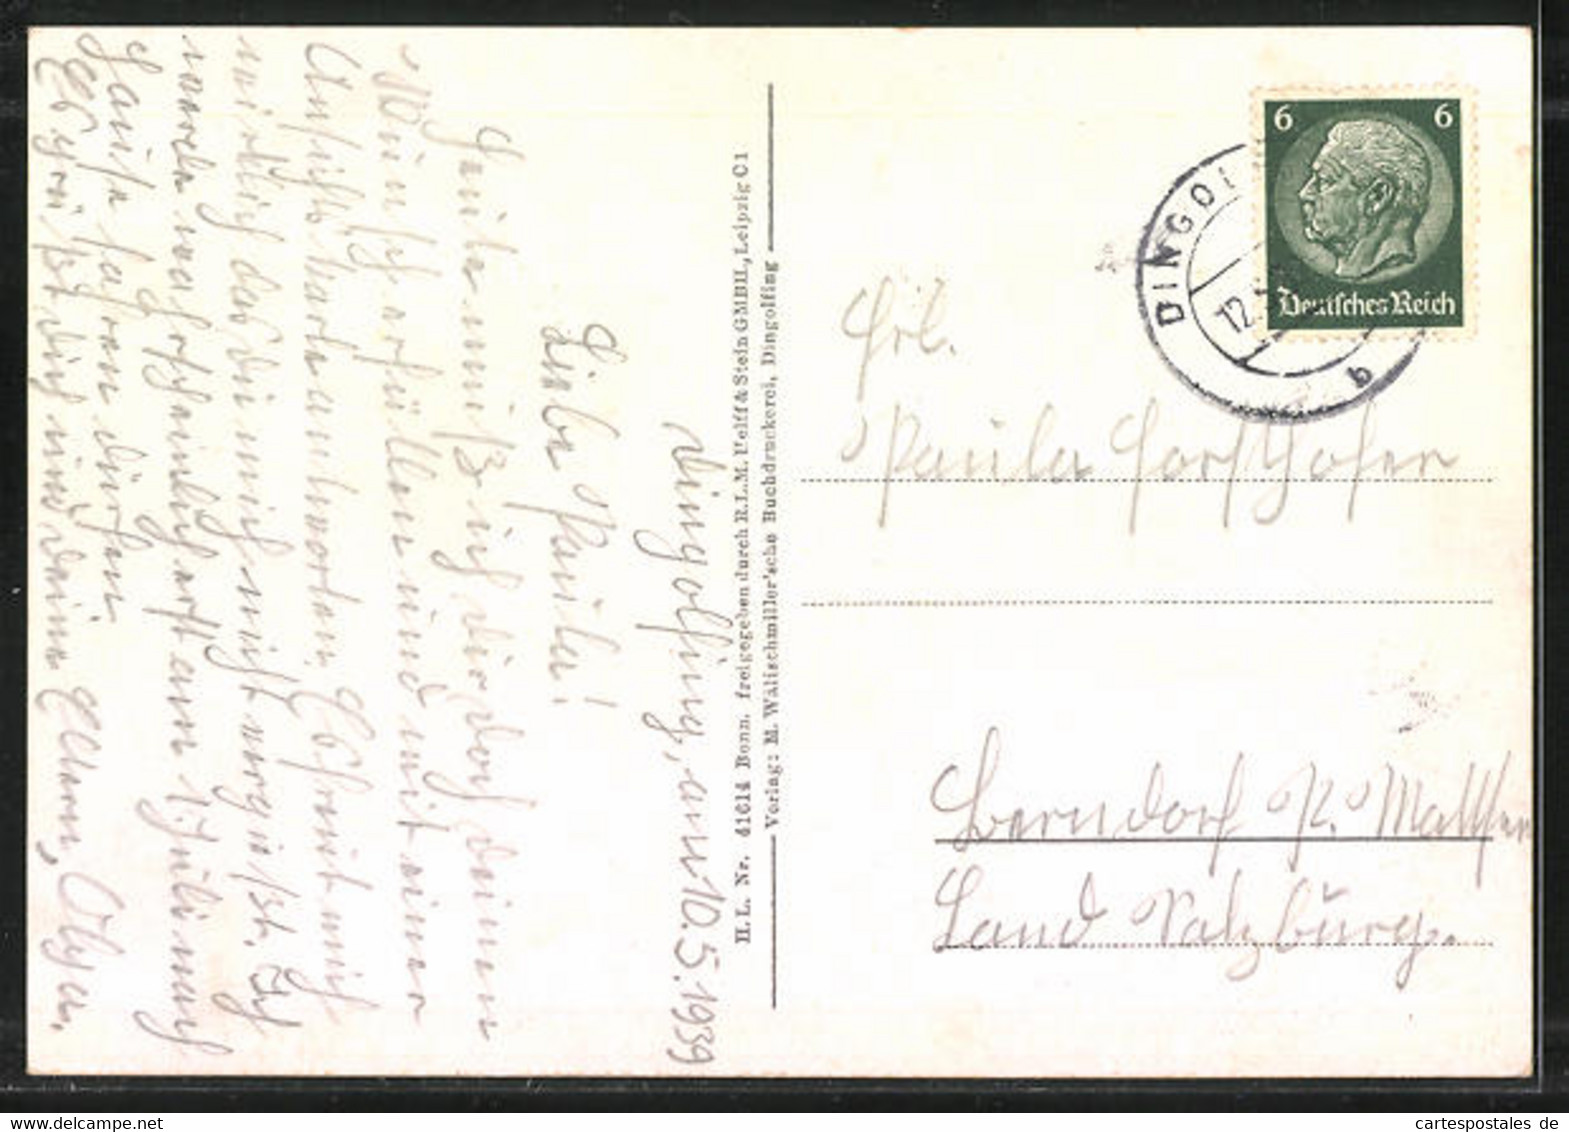 Dingolfing, am 10.5.1939
Liebe Paula!
Heute muß ich dir doch deinen
Wunsch erfüllen und mit einer
Ansichtskarte antworten. Es freut mich
wirklich das du mich nicht vergißt. Ich
werde wahrscheinlich erst am 1. Juli nach
Hause fahren dürfen.
Es grüßt dich und deine Eltern, Olga.
H.L. Nr. 41614 Bonn. freigegeben durch R.L.M. Uelff & Stein GMBH., Leipzig C1
Verlag: M. Wälischmiller'sche Buchdruckerei, Dingolfing
6 6
Deutsches Reich
DINGOL
12.
b
Frl.
Paula Forsthofer
Berndorf P. Mattsee
Land Salzburg.
cartespostales de